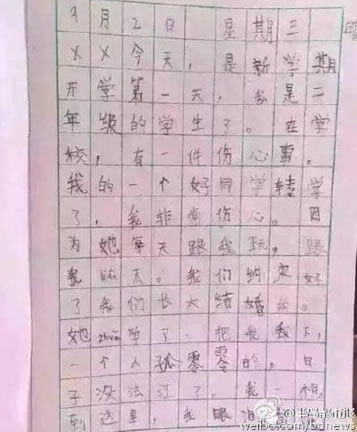 9月2日 星期三
××今天，是新学期
开学第一天，我是二
年级的学生了。在学
校，有一件伤心事，
我的一个好同学转学
了，我非常伤心。因
为她每天跟我玩，跟
我聊天。我们约定好
了我们长大结婚的。
她zhuǎn学了，把我丢下，
一个人孤零零的，日
子没法过了。我一想
到这里，我眼泪
weibo.com/bdnews